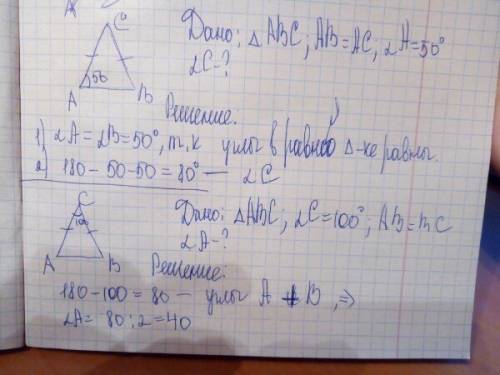 C
50
A B
Дано: △ABC; AB=AC; ∠A=50°
∠C-?
Решение:
1) ∠A=∠B=50°, т.к углы в равнбо △-ке равны.
2) 180-50-50=80° — ∠C
C
100
A B
Дано: △ABC; ∠C=100°; AB=BC
∠A-?
Решение:
180-100=80 — углы A + B, ⇒
∠A= 80:2=40